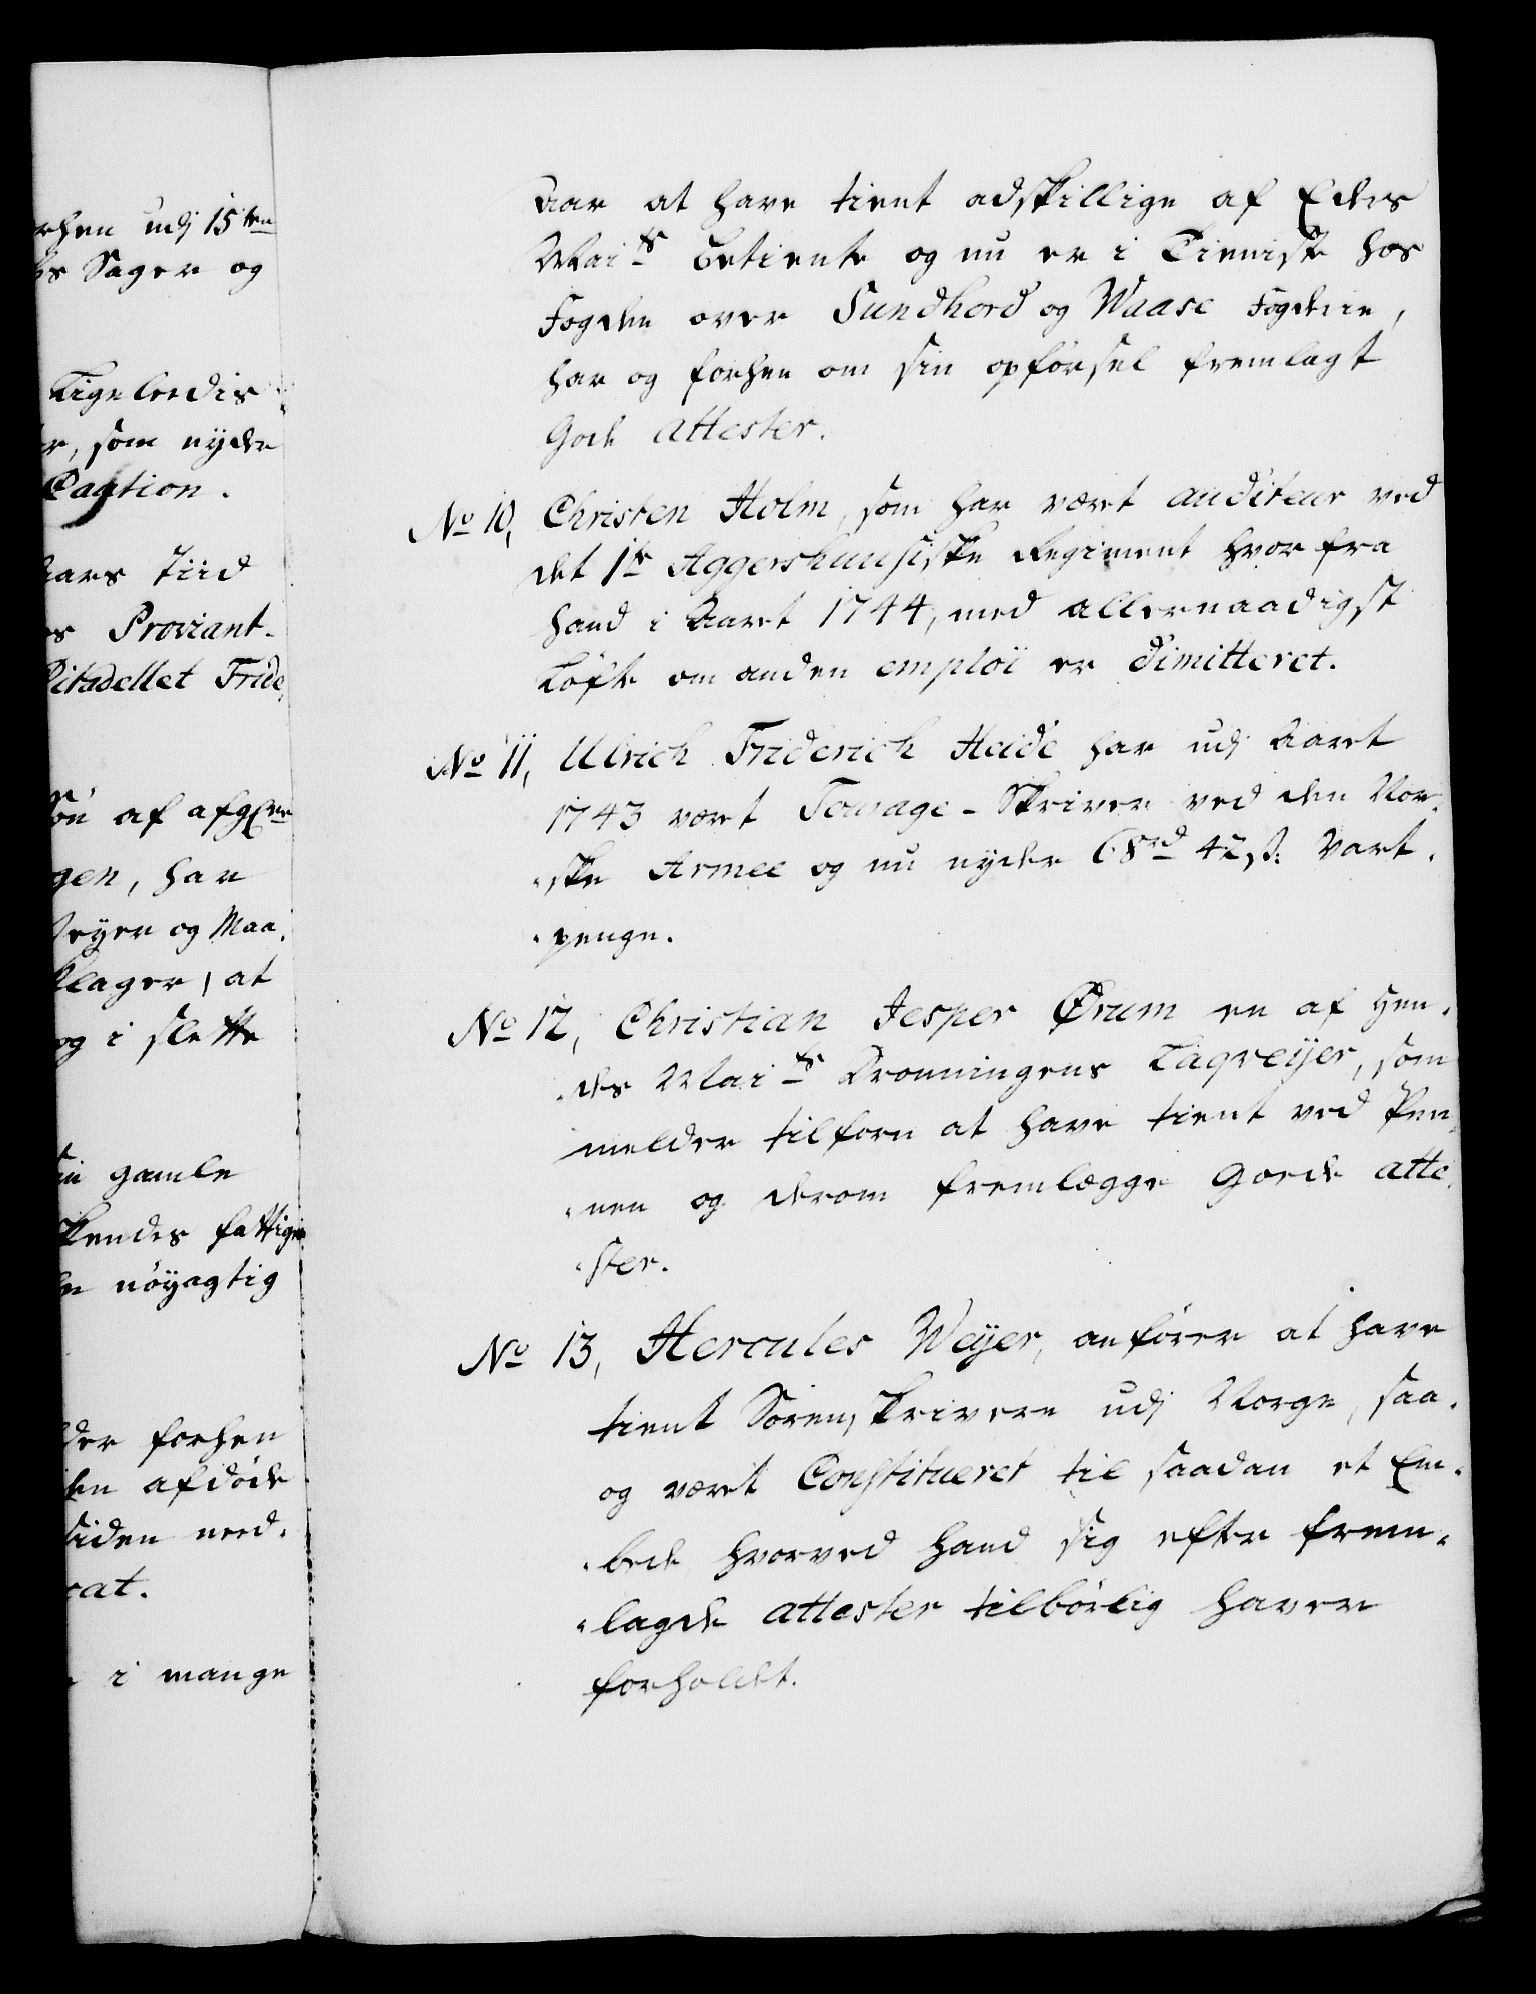 rhen udj 15ten
ds Sager og
Ligeledis
er, som nyde
Caution.
Aars Tiid
es Proviant-
Citadellet Fride
Søn af afg
gen, har
Veyer og Maa
klager, at
og i slette
sin gamle
kendes fattige
en nøyagtig
der forhen
den afdøde
siden need.
cat.
i mange
Aar at have tient adskillige af Eders
Maits betiente og nu er i Tieniste hos
Fogden over Sundhord og Waase Fogderie,
har og forhen om sin opførsel fremlagt
Gode attester.
No 10, Christen Holm, som har vært auditeur ved
det 1te Aggershuusiske Regiment hvorfra
hand i Aaret 1744, med allernaadigst
Løfte om anden emploi er dimitteret.
No 11, Ulrich Friderich Heide har udj Aaret
1743 vært Fourage-Skriver ved den Nor-
-ske Armee og nu nyder 68rd 42s: Vart-
-penge.
No 12, Christian Jesper Ørum en af Hen-
-des Maits Dronningens Laqveijer, som
melder tilforn at have tient ved Pen-
-nen og derom fremlægge Goede atte-
-ster.
No 13, Hercules Weijer, anfører at have
tient Sorenskrivere udj Norge, saa-
og vært Constitueret til saadan et Em-
-bede, hvorved hand sig efter frem-
-lagde attester tilbørlig haver
forholdet.